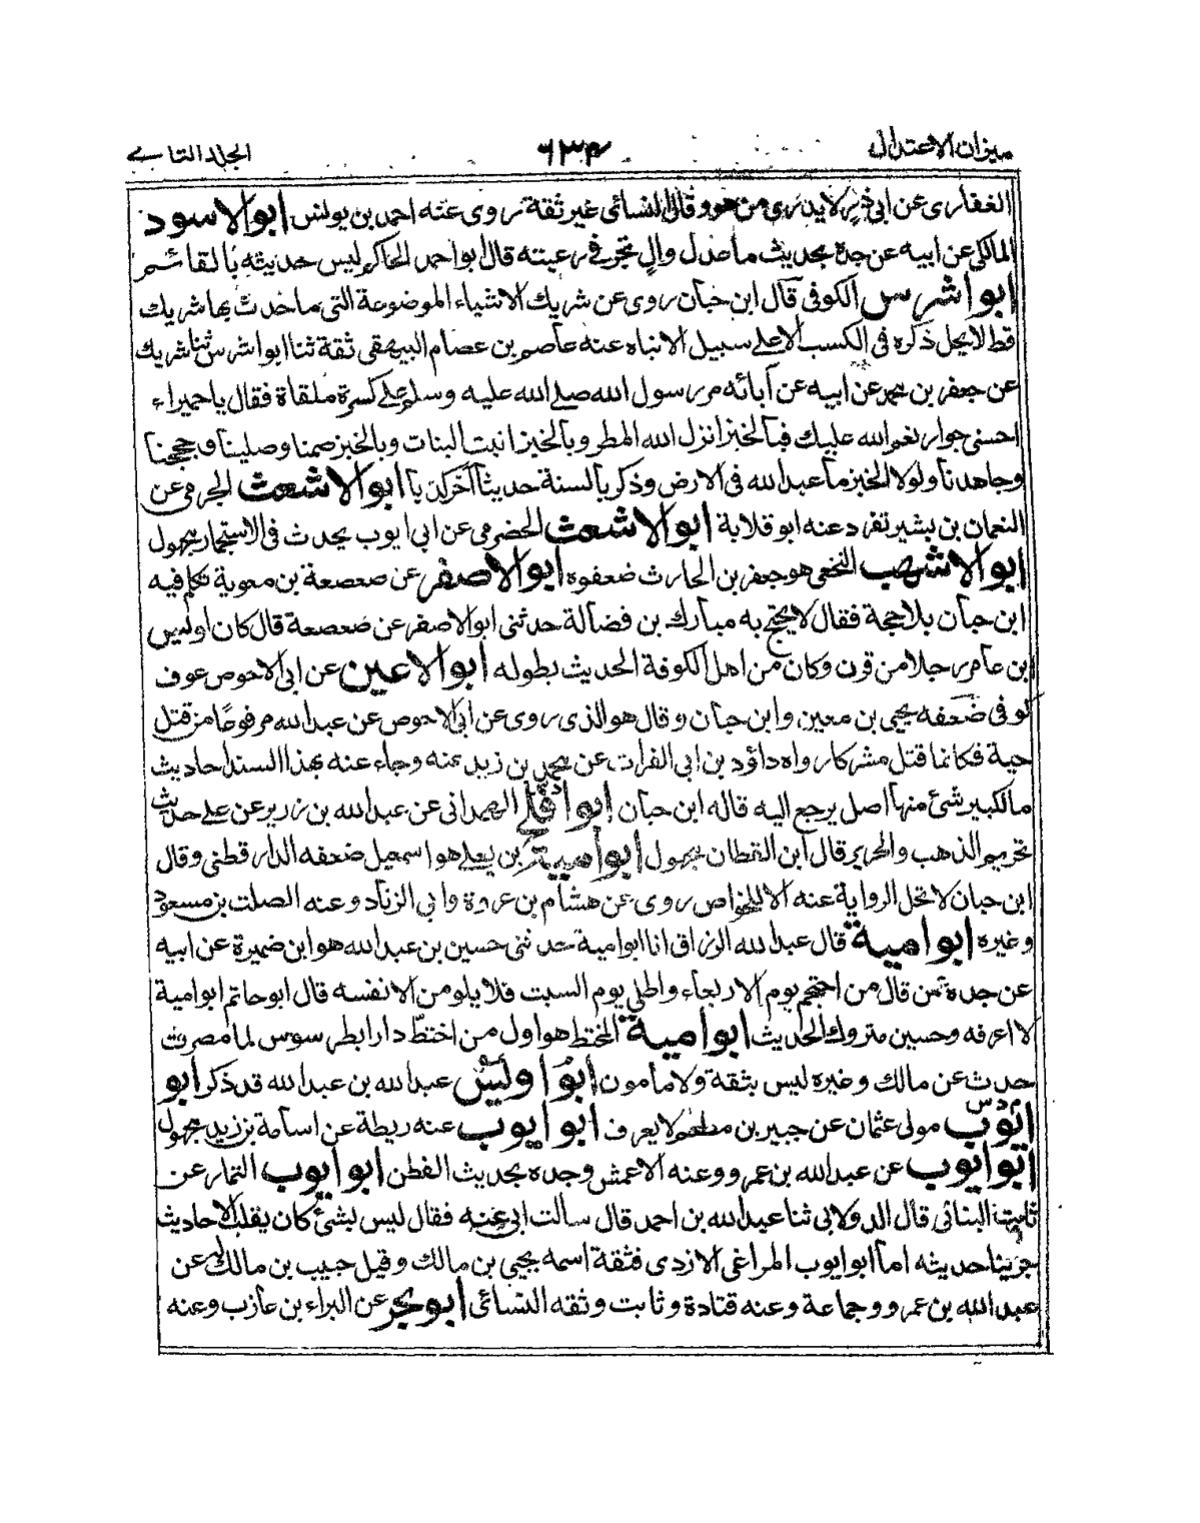 ميزان الاعتدال ٦٣٤ الجلد الثاني
الغفاري عن ابي ذر لا يدرى من هو وقال النسائي غير ثقة روى عنه احمد بن يونس ابو الاسود
المالكي عن ابيه عن جده بحديث ما عدل وال تجر في رعيته قال ابو احمد الحاكم ليس حديثه بالقائم
ابو اشرس الكوفي قال ابن حبان روى عن شريك الاشياء الموضوعة التي ما حدث بها شريك
قط لا يحل ذكره في الكتب الا على سبيل الانباه عنه عاصم بن عصام البيهقي ثقة ثنا ابو اشرس ثنا شريك
عن جعفر بن محمد عن ابيه عن آبائه مر رسول الله صلے الله عليه وسلم على كسرة ملقاة فقال يا حميراء
احسني جوار نعم الله عليك فبالخبز انزل الله المطر وبالخبز انبت النبات وبالخبز صمنا وصلينا وحججنا
وجاهدنا ولولا الخبز ما عبد الله في الارض وذكر بالسنة حديثا آخر كذبا ابو الاشعث الجرمي عن
النعمان بن بشير تفرد عنه ابو قلابة ابو الاشعث الحضرمي عن ابي ايوب يحدث في الاستجمار مجهول
ابو الاشهب النخعي هو جعفر بن الحارث ضعفوه ابو الاصفر عن صعصعة بن معوية تكلم فيه
ابن حبان بلا حجة فقال لا يحتج به مبارك بن فضالة حدثني ابو الاصفر عن صعصعة قال كان اويس
ابن عامر رجلا من قرن وكان من اهل الكوفة الحديث بطوله ابو الاعين عن ابي الاحوص عوف
كوفي ضعفه يحيى بن معين وابن حبان وقال هو الذي روى عن ابي الاحوص عن عبد الله مرفوعا من قتل
حية فكانما قتل مشركا رواه داؤد بن ابي الفرات عن محمد بن زيد عنه وجاء عنه بهذا السند احاديث
ما لكبير شئ منها اصل يرجع اليه قاله ابن حبان ابو افلح الهمداني عن عبد الله بن زرير عن علے حديث
تحريم الذهب والحرير قال ابن القطان مجهول ابو امية بن يعلے هو اسمعيل ضعفه الدارقطني وقال
ابن حبان لا تحل الرواية عنه الا للخواص روى عن هشام بن عروة وابي الزناد وعنه الصلت بن مسعود
وغيره ابو امية قال عبد الرزاق انا ابو امية حدثني حسين بن عبد الله هو ابن ضميرة عن ابيه
عن جده من قال من احتجم يوم الاربعاء واطلى يوم السبت فلا يلومن الا نفسه قال ابو حاتم ابو امية
لا اعرفه وحسين متروك الحديث ابو امية المختط هو اول من اختط دارا بطرسوس لما مصرت
حدث عن مالك وغيره ليس بثقة ولا مامون ابو اويس عبد الله بن عبد الله قد ذكر ابو
ايوب مولى عثمان عن جبير بن مطعم لا يعرف ابو ايوب عنه ريطة عن اسامة بن زيد مجهول
ابو ايوب عن عبد الله بن عمرو وعنه الاعمش وحده بحديث الفطن ابو ايوب التمار عن
ثابت البناني قال الدولابي ثنا عبد الله بن احمد قال سالت ابي عنه فقال ليس بشئ كان يقلب الاحاديث
حديثه اما ابو ايوب المراغي الازدي فثقة اسمه يحيى بن مالك وقيل حبيب بن مالك عن
عبد الله بن عمرو وجماعة وعنه قتادة وثابت وثقه النسائي ابو بحر عن البراء بن عازب وعنه